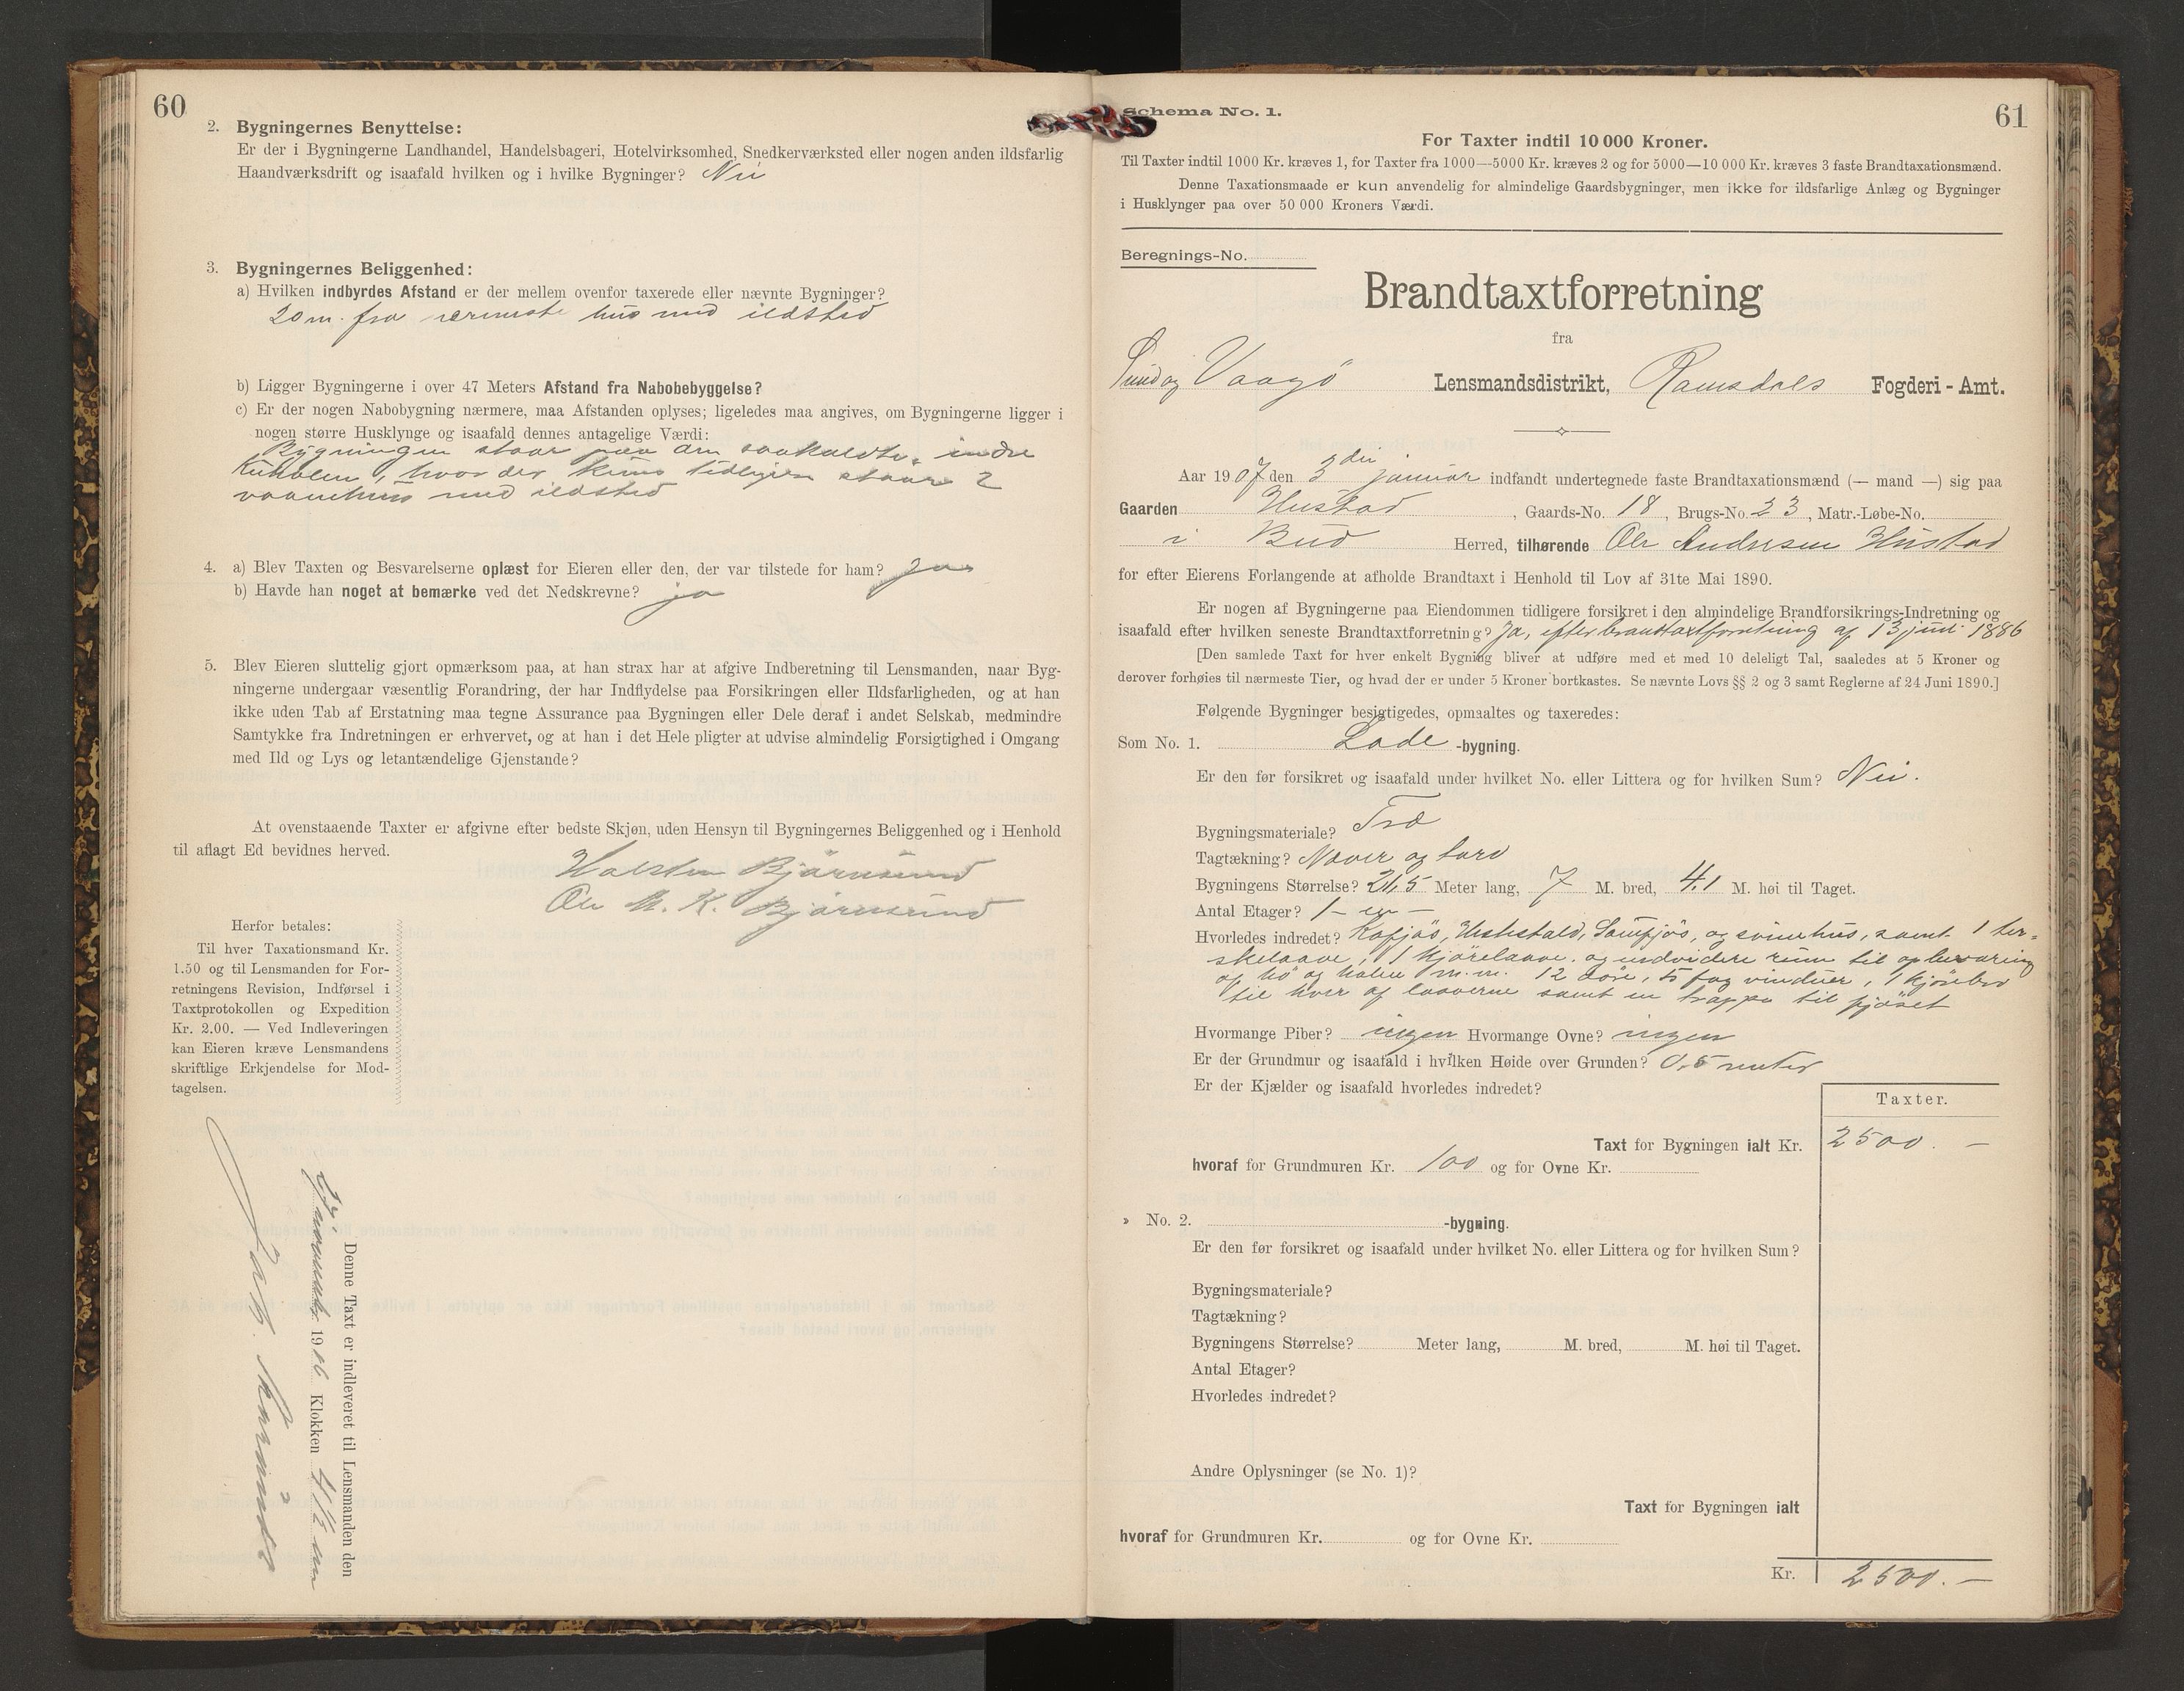 60
2. Bygningernes Benyttelse:
Er der i Bygningerne Landhandel, Handelsbageri, Hotelvirksomhed, Snedkerværksted eller nogen anden ildsfarlig
Haandværksdrift og isaafald hvilken og i hvilke Bygninger? Nei
3. Bygningernes Beliggenhed:
a) Hvilken indbyrdes Afstand er der mellem ovenfor taxerede eller nævnte Bygninger?
20 m. fra nærmeste hus med ildsted
b) Ligger Bygningerne i over 47 Meters Afstand fra Nabobebyggelse?
c) Er der nogen Nabobygning nærmere, maa Afstanden oplyses; ligeledes maa angives, om Bygningerne ligger i
nogen større Husklynge og isaafald dennes antagelige Værdi:
Bygningen staar paa den saakaldte indre
Kuholm, hvor der tidligere staar 2
vaanehus med ildsted
4. a) Blev Taxten og Besvarelserne oplæst for Eieren eller den, der var tilstede for ham? Ja
b) Havde han noget at bemærke ved det Nedskrevne? ja
5. Blev Eieren sluttelig gjort opmærksom paa, at han strax har at afgive Indberetning til Lensmanden, naar Byg-
ningerne undergaar væsentlig Forandring, der har Indflydelse paa Forsikringen eller Ildsfarligheden, og at han
ikke uden Tab af Erstatning maa tegne Assurance paa Bygningen eller Dele deraf i andet Selskab, medmindre
Samtykke fra Indretningen er erhvervet, og at han i det Hele pligter at udvise almindelig Forsigtighed i Omgang
med Ild og Lys og letantændelige Gjenstande?
At ovenstaaende Taxter er afgivne efter bedste Skjøn, uden Hensyn til Bygningernes Beliggenhed og i Henhold
til aflagt Ed bevidnes herved.
Halsten Bjørnsund
Ole M. K. Bjørnsund
Herfor betales:
Til hver Taxationsmand Kr.
1.50 og til Lensmanden for For-
retningens Revision, Indførsel i
Taxtprotokollen og Expedition
Kr. 2.00. — Ved Indleveringen
kan Eieren kræve Lensmandens
skriftlige Erkjendelse for Mod-
tagelsen.
Denne Taxt er indleveret til Lensmanden den
1906 Klokken 4 1/2 em
Schema No. 1.
61
For Taxter indtil 10 000 Kroner.
Til Taxter indtil 1000 Kr. kræves 1, for Taxter fra 1000—5000 Kr. kræves 2 og for 5000—10 000 Kr. kræves 3 faste Brandtaxationsmænd.
Denne Taxationsmaade er kun anvendelig for almindelige Gaardsbygninger, men ikke for ildsfarlige Anlæg og Bygninger
i Husklynger paa over 50 000 Kroners Værdi.
Beregnings-No.
Brandtaxtforretning
fra
Sund og Vaagø Lensmandsdistrikt, Romsdals Fogderi - Amt.
Aar 1907 den 3die januar indfandt undertegnede faste Brandtaxationsmænd (— mand —) sig paa
Gaarden Hustad, Gaards-No. 18, Brugs-No. 23, Matr.-Løbe-No.
i Bud Herred, tilhørende Ole Andresen Hustad
for efter Eierens Forlangende at afholde Brandtaxt i Henhold til Lov af 31te Mai 1890.
Er nogen af Bygningerne paa Eiendommen tidligere forsikret i den almindelige Brandforsikrings-Indretning og
isaafald efter hvilken seneste Brandtaxtforretning? Ja, efter brandtaxtforretning af 13 juni 1886
[Den samlede Taxt for hver enkelt Bygning bliver at udføre med et med 10 deleligt Tal, saaledes at 5 Kroner og
derover forhøies til nærmeste Tier, og hvad der er under 5 Kroner bortkastes. Se nævnte Lovs §§ 2 og 3 samt Reglerne af 24 Juni 1890.]
Følgende Bygninger besigtigedes, opmaaltes og taxeredes:
Som No. 1. Lade -bygning.
Er den før forsikret og isaafald under hvilket No. eller Littera og for hvilken Sum? Nei.
Bygningsmateriale? Træ
Tagtækning? Næver og torv
Bygningens Størrelse? 21,5 Meter lang, 7 M. bred, 4,1 M. høi til Taget.
Antal Etager? 1 – en –
Hvorledes indredet? Kofjøs, Hestestald, Sauefjøs, og svinehus, samt 1 tær-
skelaave, 1 kjørelaave. og endvidere rum til opbevaring
af hø og halm m.m. 12 døre, 5 fag vinduer, 1 kjørebro
til hver af laaverne samt en trappe til fjøset
Hvormange Piber? ingen Hvormange Ovne? ingen
Er der Grundmur og isaafald i hvilken Høide over Grunden? 0,5 meter
Er der Kjælder og isaafald hvorledes indredet?
Taxter.
Taxt for Bygningen ialt Kr. 2500. –
hvoraf for Grundmuren Kr. 100 og for Ovne Kr.
» No. 2. -bygning.
Er den før forsikret og isaafald under hvilket No. eller Littera og for hvilken Sum?
Bygningsmateriale?
Tagtækning?
Bygningens Størrelse? Meter lang, M. bred, M. høi til Taget.
Antal Etager?
Hvorledes indredet?
Andre Oplysninger (se No. 1)?
Taxt for Bygningen ialt
hvoraf for Grundmuren Kr. og for Ovne Kr.
Kr. 2500. –